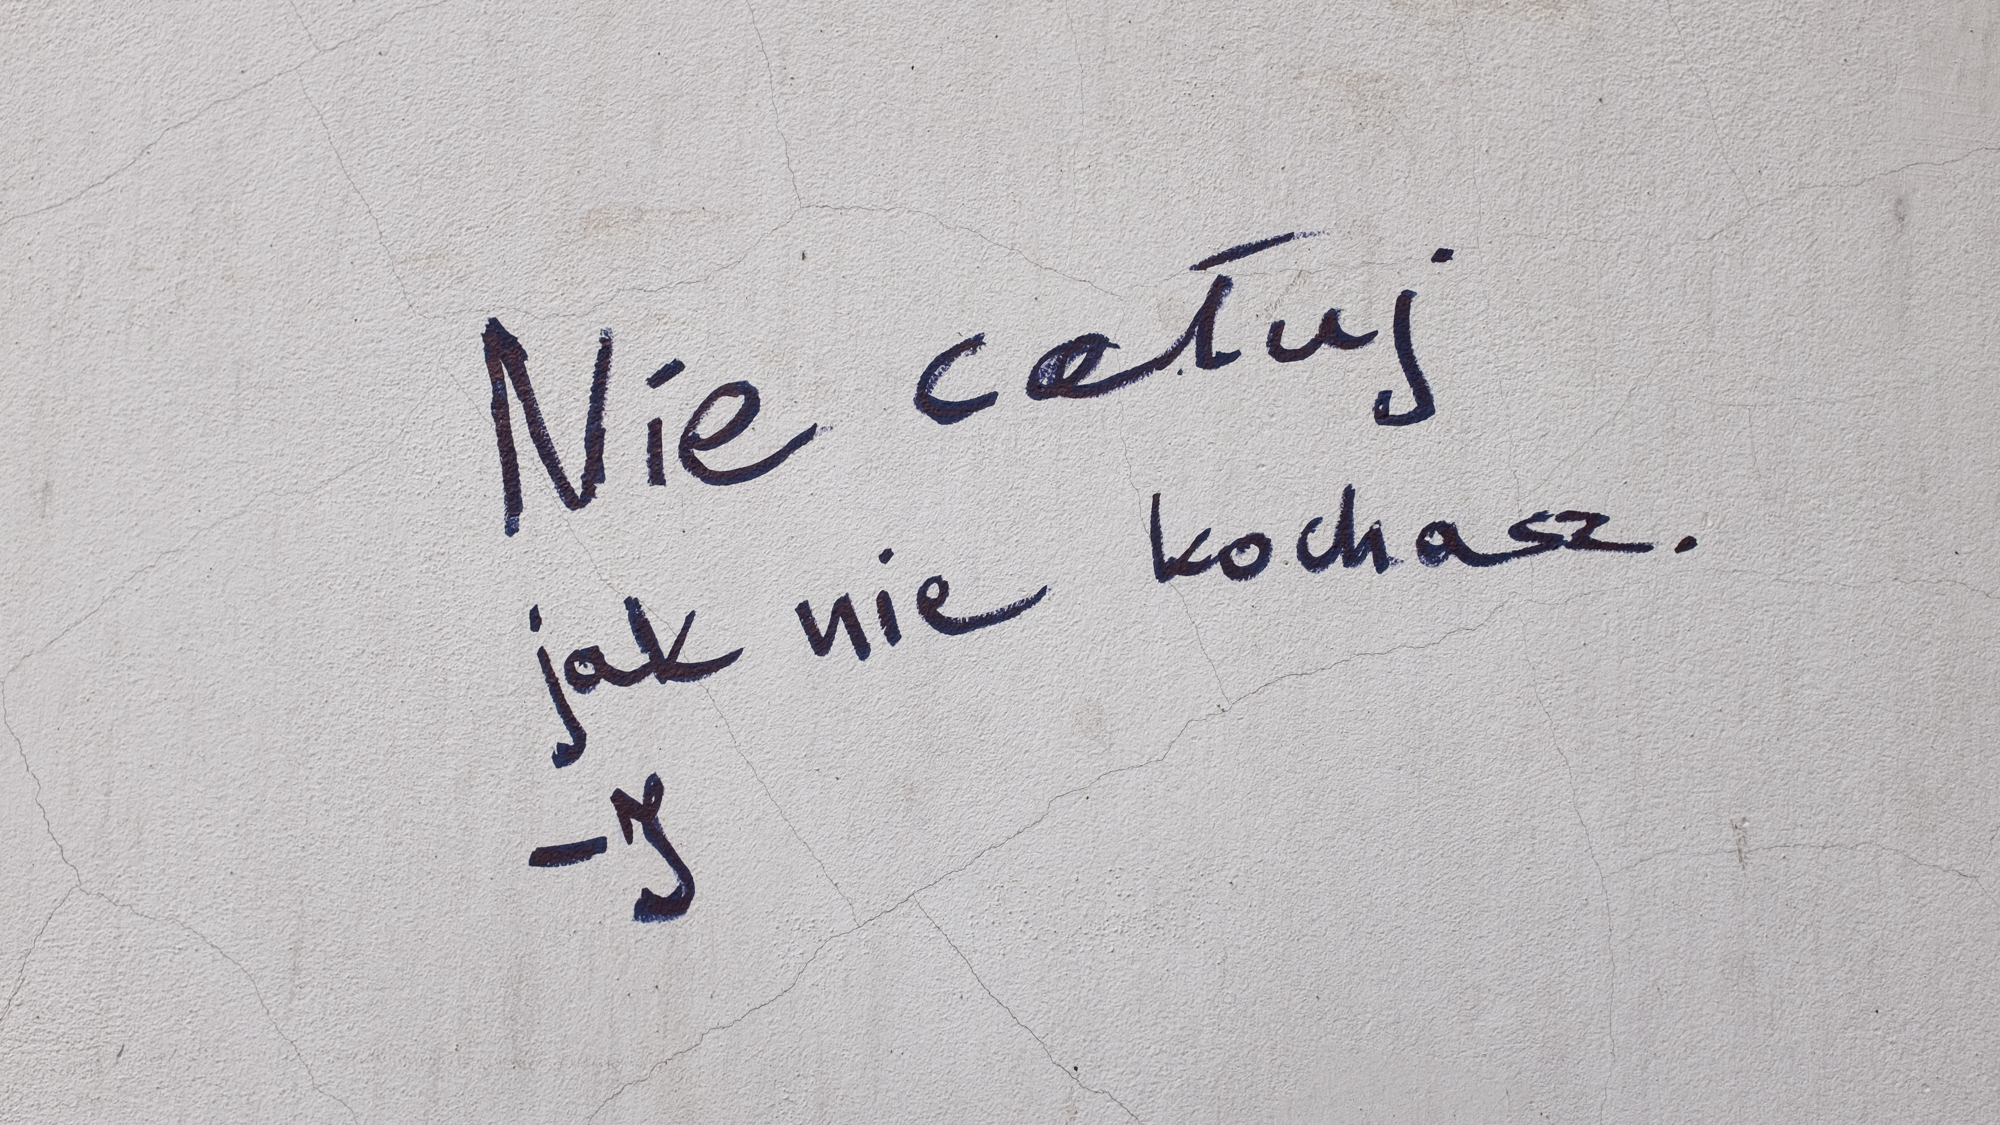 Nie całuj
jak nie kochasz.
-J